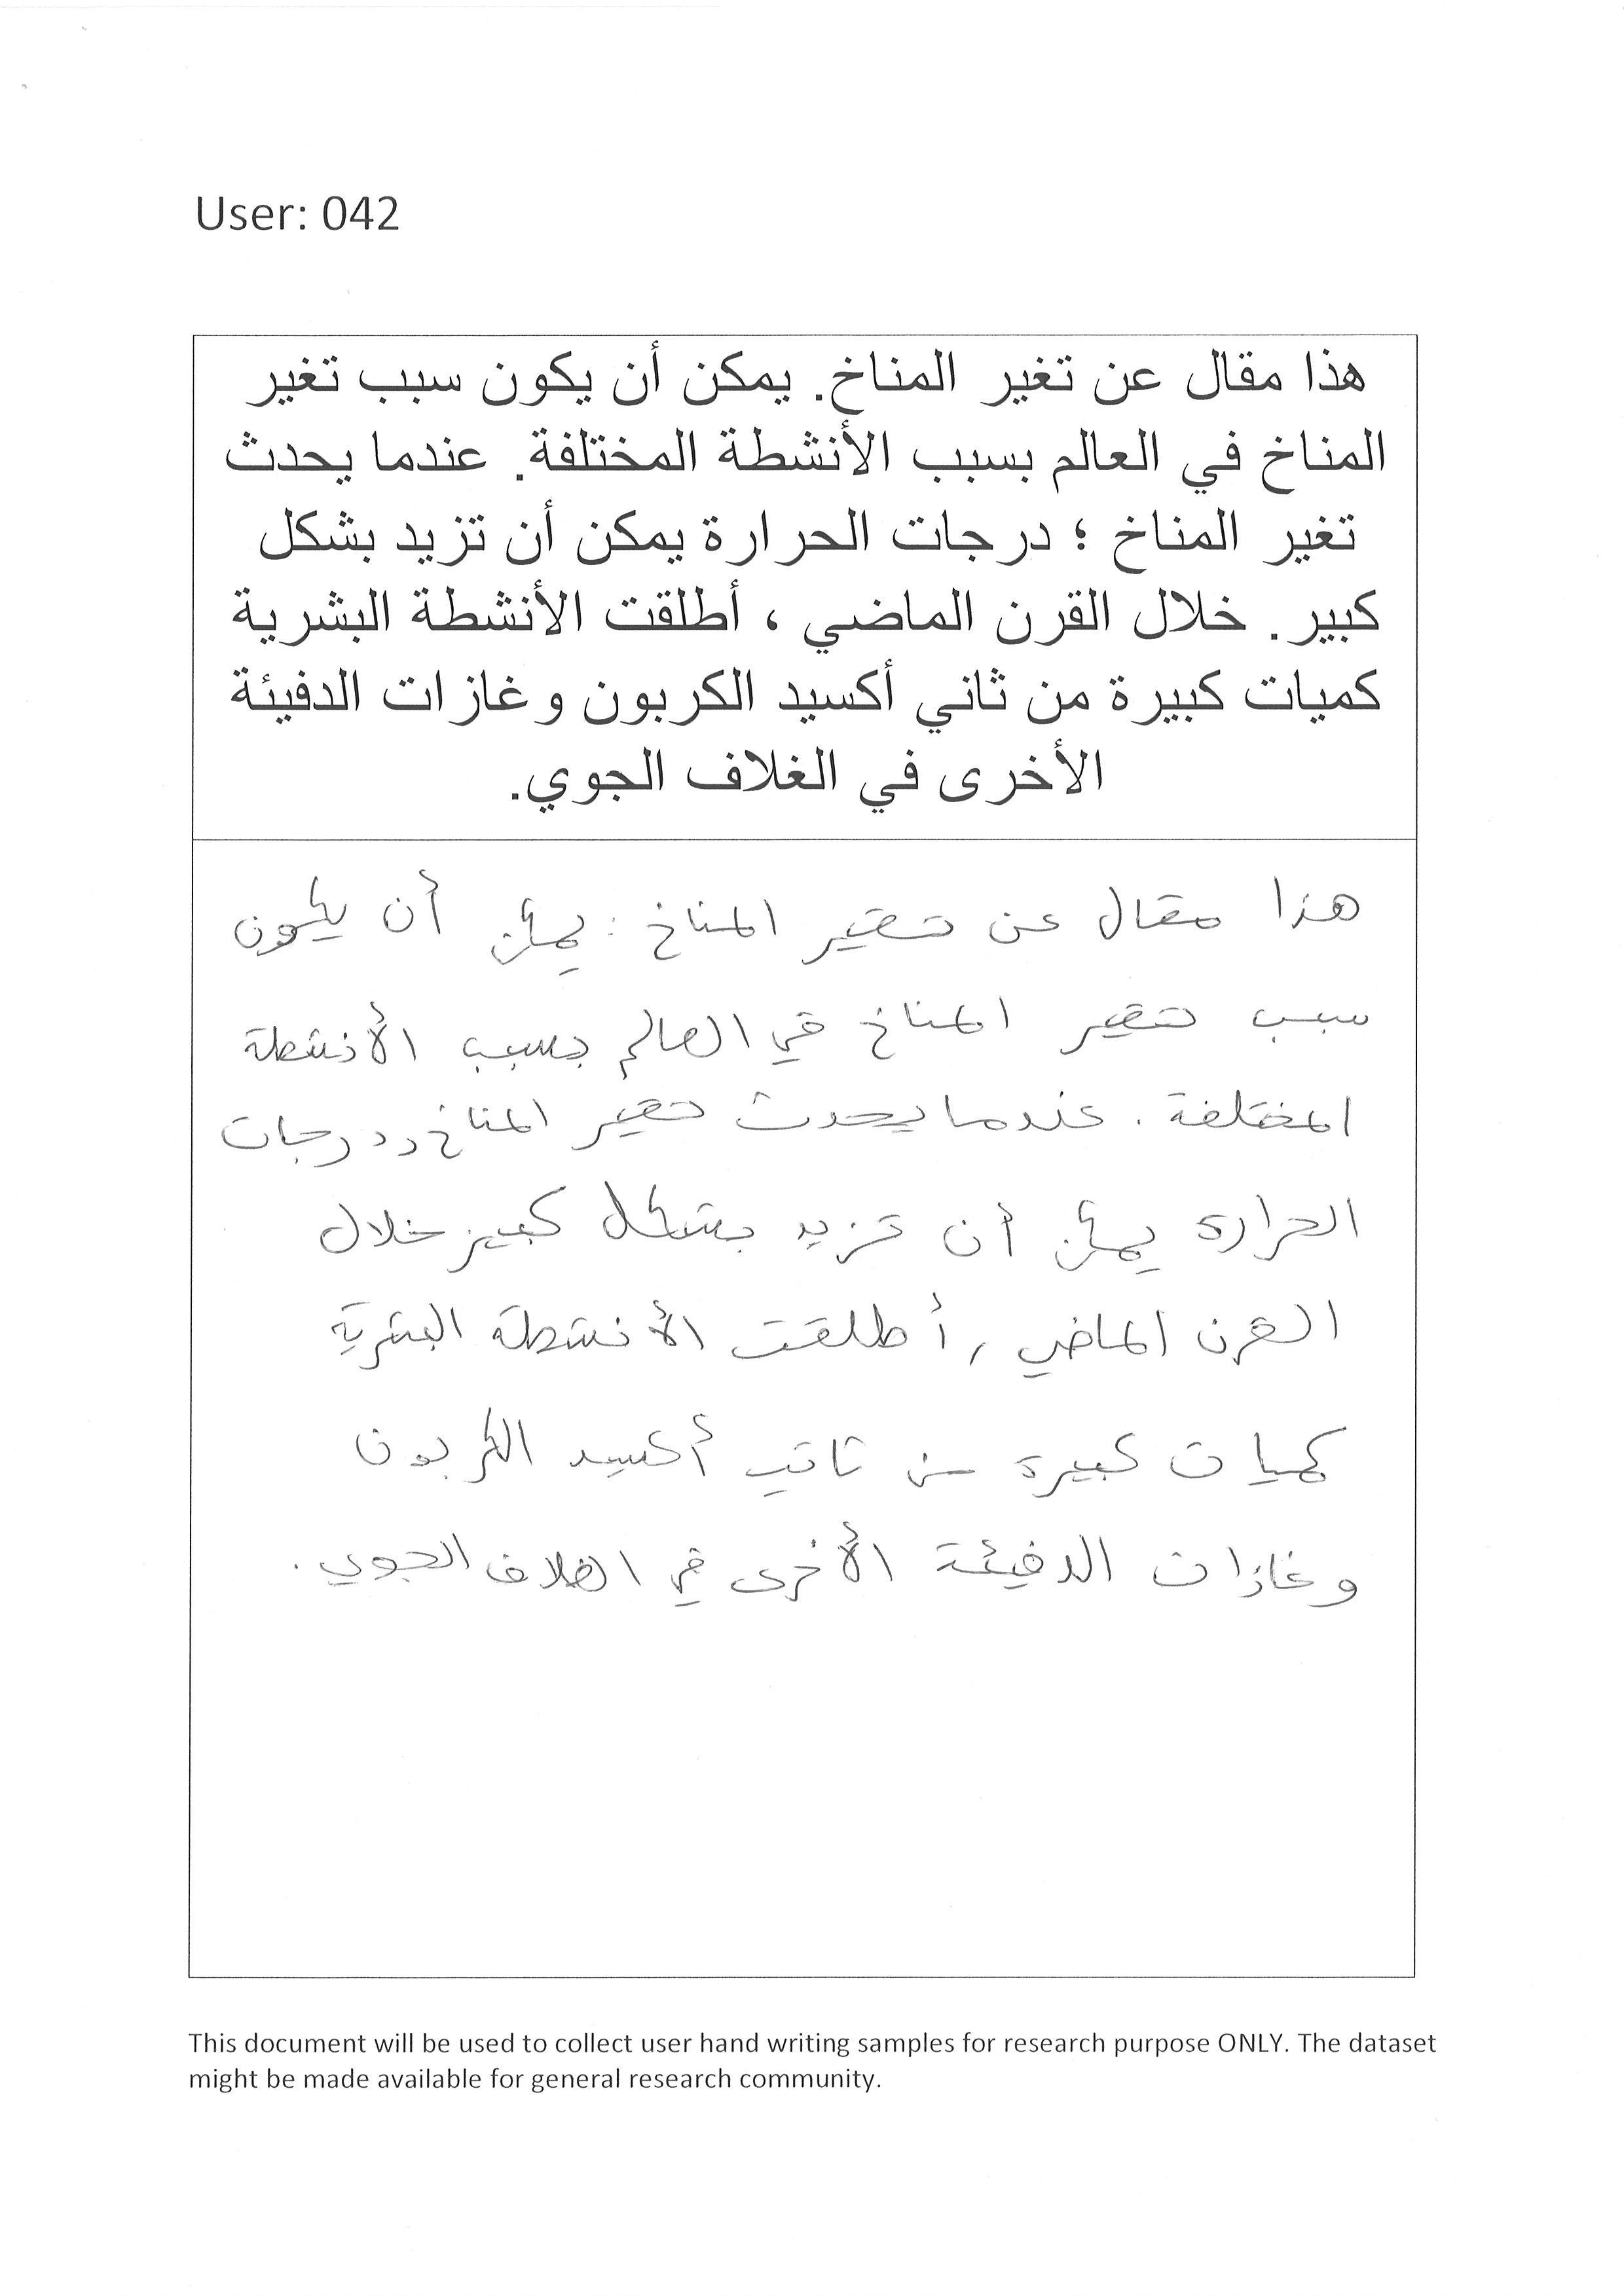 User: 042
هذا مقال عن تغير المناخ. يمكن أن يكون سبب تغير
المناخ في العالم بسبب الأنشطة المختلفة. عندما يحدث
تغير المناخ ؛ درجات الحرارة يمكن أن تزيد بشكل
كبير. خلال القرن الماضي ، أطلقت الأنشطة البشرية
كميات كبيرة من ثاني أكسيد الكربون وغازات الدفيئة
الأخرى في الغلاف الجوي.
هذا مقال عن تغير المناخ : يمكن أن يكون
سبب تغير المناخ في العالم بسبب الأنشطة
المختلفة . عندما يحدث تغير المناخ درجات
الحرارة يمكن أن تزيد بشكل كبير خلال
القرن الماضي ، أطلقت الأنشطة البشرية
كميات كبيرة من ثاني أكسيد الكربون
وغازات الدفيئة الأخرى في الغلاف الجوي .
This document will be used to collect user hand writing samples for research purpose ONLY. The dataset
might be made available for general research community.